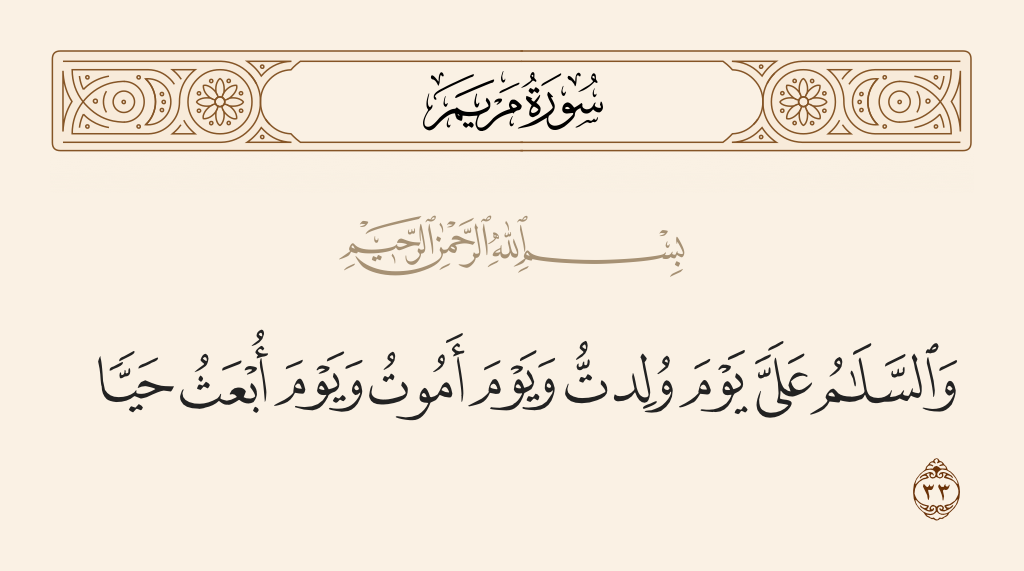 سُورَةُ مَرْيَمَ
بِسْمِ ٱللَّهِ ٱلرَّحْمَٰنِ ٱلرَّحِيمِ
وَٱلسَّلَـٰمُ عَلَىَّ يَوْمَ وُلِدتُّ وَيَوْمَ أَمُوتُ وَيَوْمَ أُبْعَثُ حَيًّا
٣٣